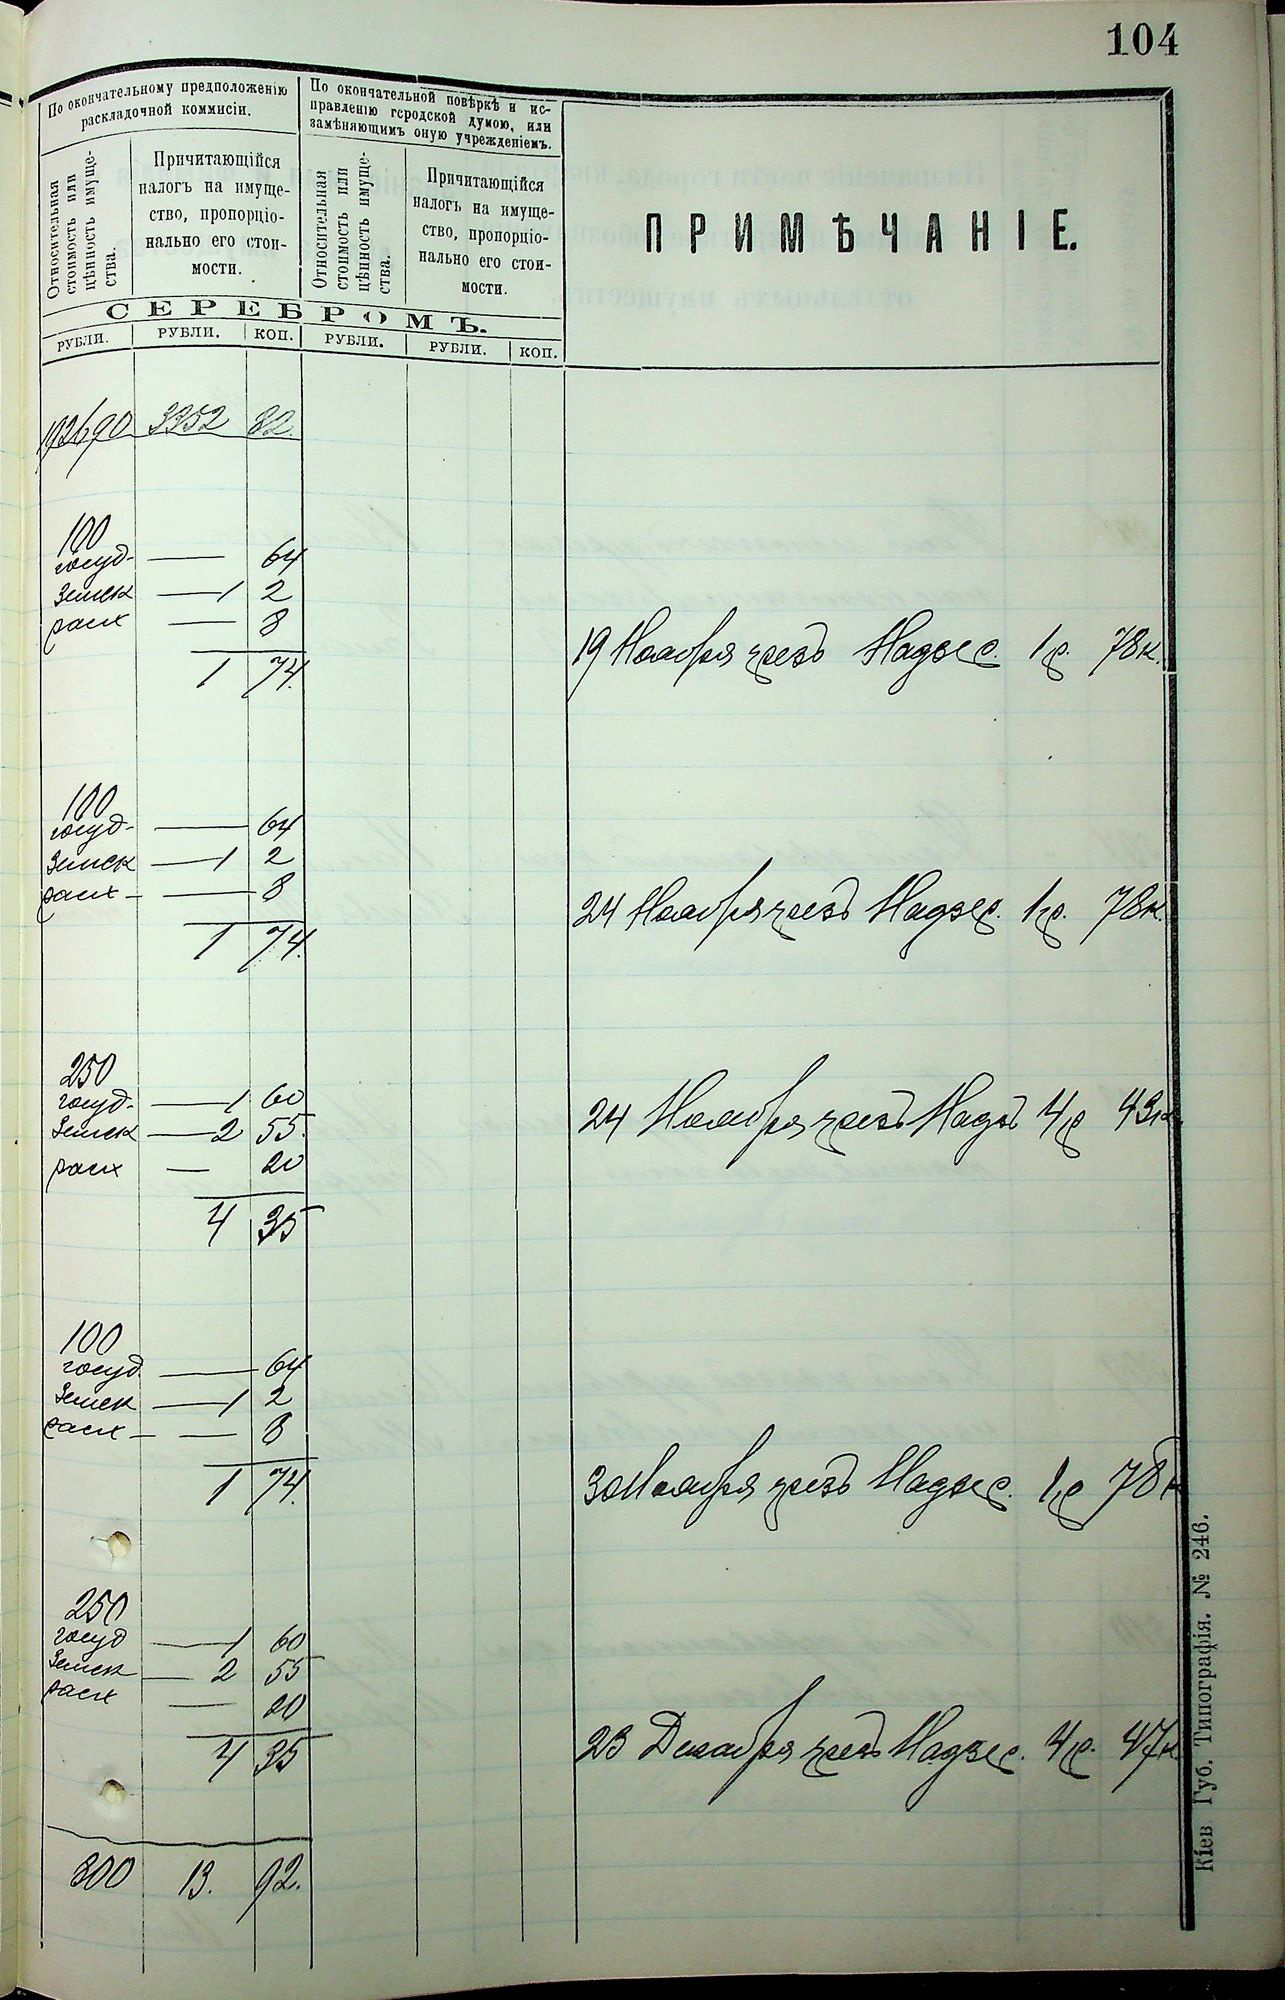 104
По окончательному предположенію
раскладочной комисіи.
По окончательной повѣркѣ и ис-
правленію городской думою, или
замѣняющимъ оную учрежденіемъ.
Относительная
стоимость или
цѣнность имуще-
ства.
Причитающійся
налогъ на имуще-
ство, пропорціо-
нально его стои-
мости.
Относительная
стоимость или
цѣнность имуще-
ства.
Причитающійся
налогъ на имуще-
ство, пропорціо-
нально его стои-
мости.
ПРИМѢЧАНІЕ.
СЕРЕБРОМЪ.
РУБЛИ. РУБЛИ. КОП. РУБЛИ. РУБЛИ. КОП.
192690 3352 82.
100
госуд- — 64
Земск — 1 2
расх — 8
1 74.
19 Ноября чрезъ Надзес. 1р. 78к.
100
госуд- — 64
Земск — 1 2
расх — — 8
1 74.
24 Ноября чрезъ Надзес. 1р. 78к.
250
госуд- — 1 60
Земск — 2 55.
расх — 20
4 35
24 Ноября чрезъ Надз 4р 43к
100
госуд — 64
Земск — 1 2
расх — — 8
1 74.
30 Ноября чрезъ Надзес. 1р 78к
250
госуд — 1 60
Земск — 2 55
расх — 20
4 35
23 Декабря чрезъ Надзес. 4р. 47к
800 13. 92.
Кіев Губ. Типографія. № 246.